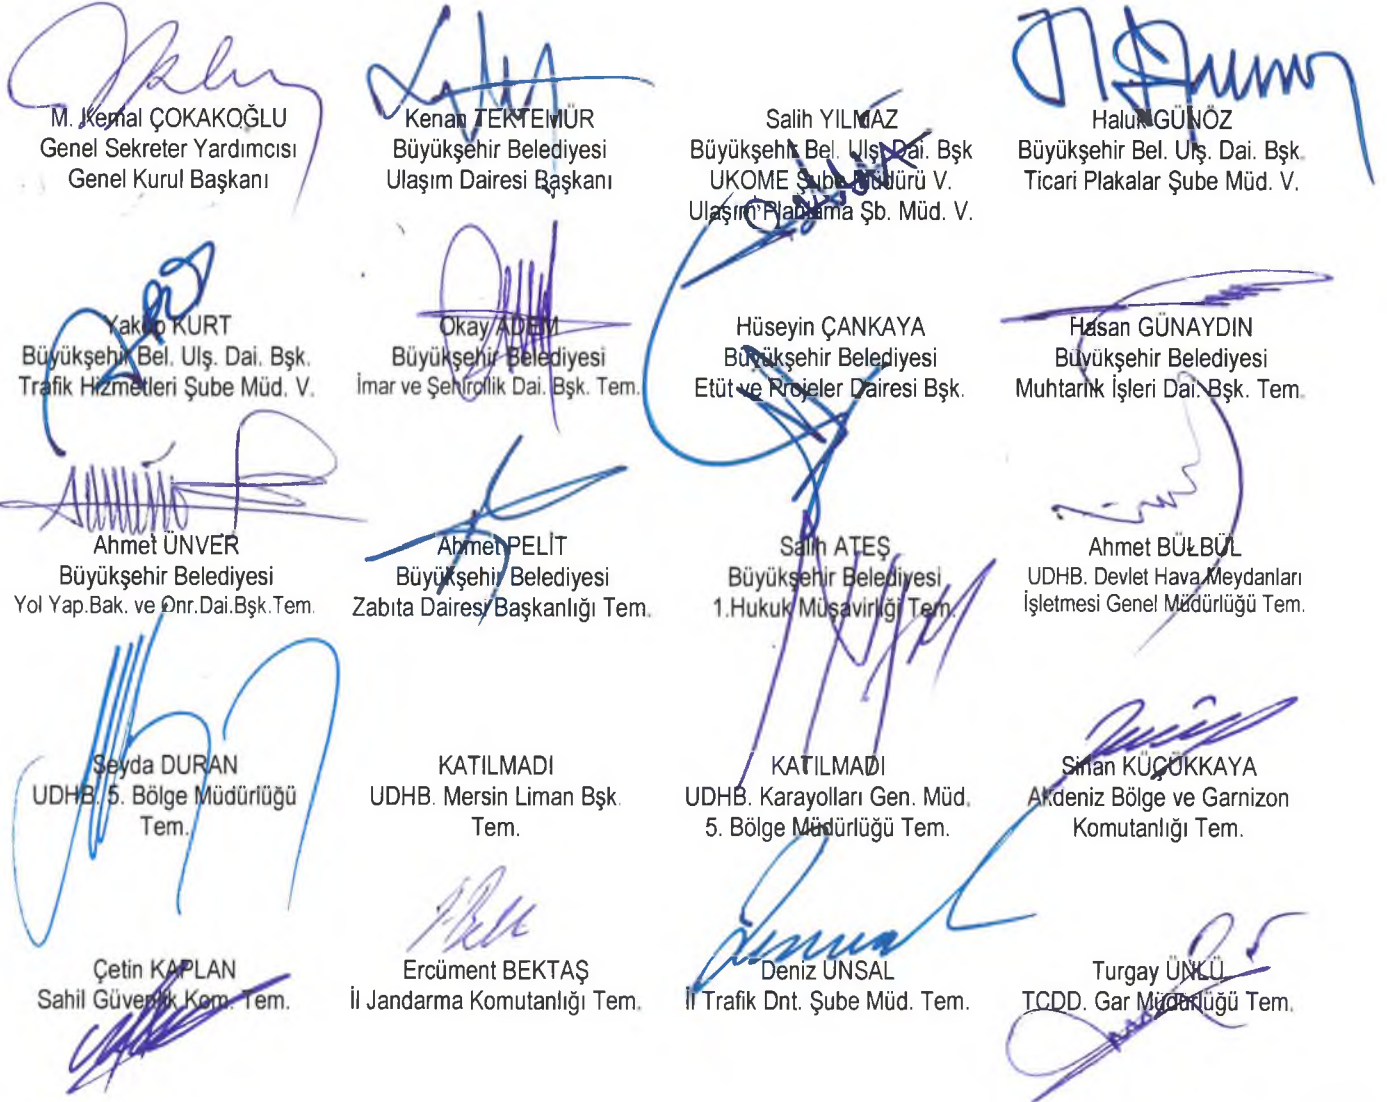 M. Kemal ÇOKAKOĞLU
Genel Sekreter Yardımcısı
Genel Kurul Başkanı
Kenan TEKTEMÜR
Büyükşehir Belediyesi
Ulaşım Dairesi Başkanı
Salih YILMAZ
Büyükşehir Bel. Ulş. Dai. Bşk
UKOME Şube Müdürü V.
Ulaşım Planlama Şb. Müd. V.
Haluk GÜNÖZ
Büyükşehir Bel. Ulş. Dai. Bşk.
Ticari Plakalar Şube Müd. V.
Yakup KURT
Büyükşehir Bel. Ulş. Dai. Bşk.
Trafik Hizmetleri Şube Müd. V.
Okay ADEM
Büyükşehir Belediyesi
İmar ve Şehircilik Dai. Bşk. Tem.
Hüseyin ÇANKAYA
Büyükşehir Belediyesi
Etüt ve Projeler Dairesi Bşk.
Hasan GÜNAYDIN
Büyükşehir Belediyesi
Muhtarlık İşleri Dai. Bşk. Tem.
Ahmet ÜNVER
Büyükşehir Belediyesi
Yol Yap.Bak. ve Onr.Dai.Bşk.Tem.
Ahmet PELİT
Büyükşehir Belediyesi
Zabıta Dairesi Başkanlığı Tem.
Salih ATEŞ
Büyükşehir Belediyesi
1.Hukuk Müşavirliği Tem.
Ahmet BÜLBÜL
UDHB. Devlet Hava Meydanları
İşletmesi Genel Müdürlüğü Tem.
Şeyda DURAN
UDHB. 5. Bölge Müdürlüğü
Tem.
KATILMADI
UDHB. Mersin Liman Bşk.
Tem.
KATILMADI
UDHB. Karayolları Gen. Müd.
5. Bölge Müdürlüğü Tem.
Sinan KÜÇÜKKAYA
Akdeniz Bölge ve Garnizon
Komutanlığı Tem.
Çetin KAPLAN
Sahil Güvenlik Kom. Tem.
Ercüment BEKTAŞ
İl Jandarma Komutanlığı Tem.
Deniz ÜNSAL
İl Trafik Dnt. Şube Müd. Tem.
Turgay ÜNLÜ
TCDD. Gar Müdürlüğü Tem.